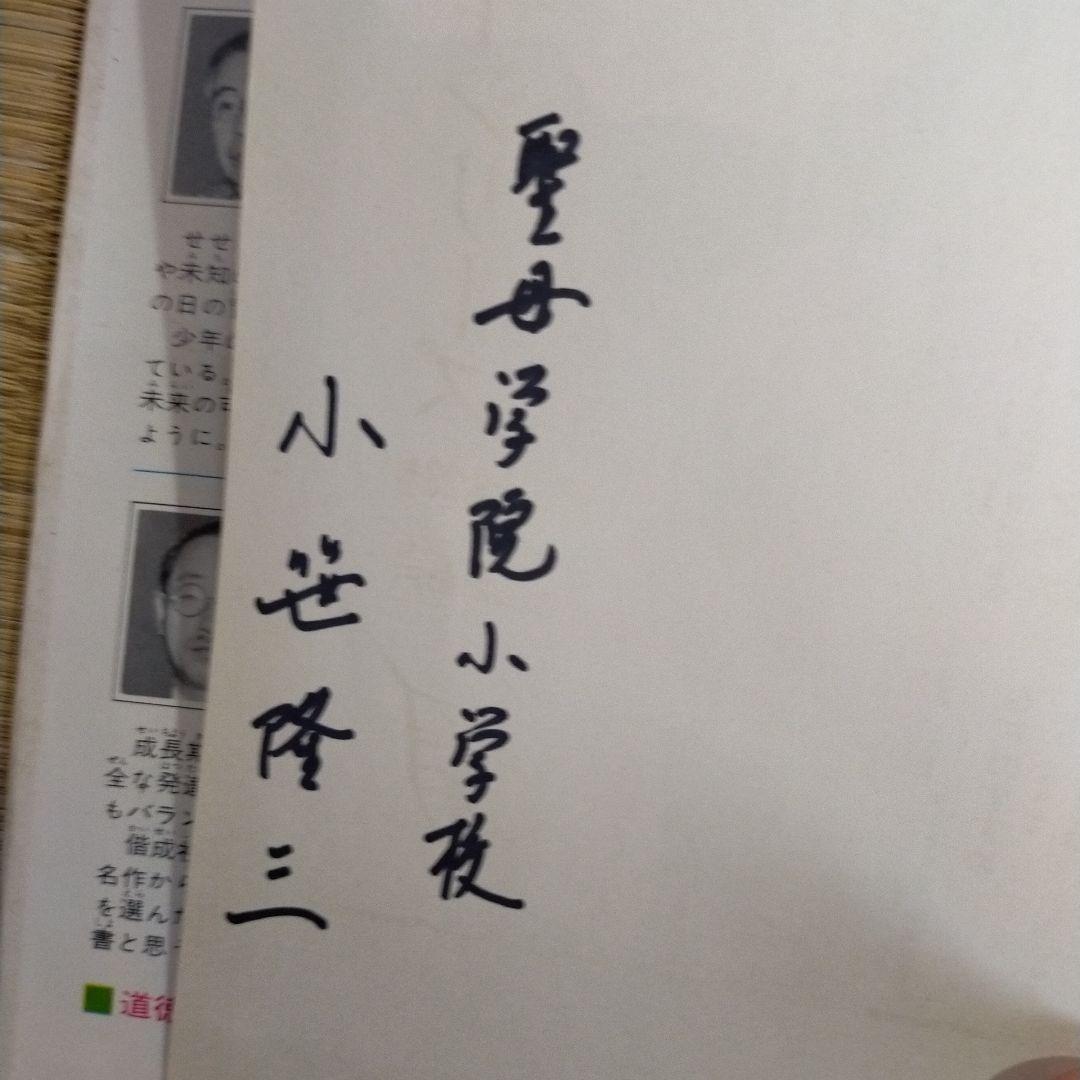 聖母学院小学校
小笹隆三
せせ
や未知
の日の
少年
ている。
未来の
ように。
成長期
全な発達
もバラン
偕成社
名作から
を選んだ
書と思
道徳